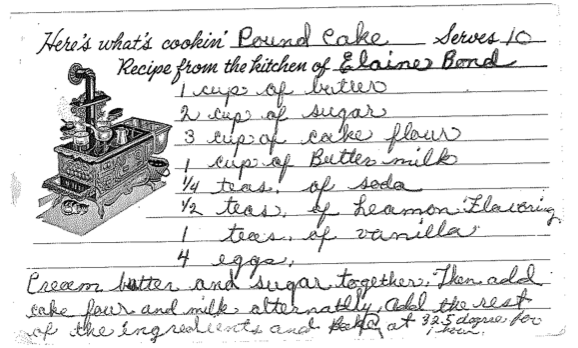 Here's what's cookin' Pound Cake Serves 10
Recipe from the kitchen of Elaine Bond
1 cup of butter
2 cup of sugar
3 cup of cake flour
1 cup of Butter milk
1/4 teas. of soda
1/2 teas. of Leamon Flavoring
1 teas. of vanilla
4 eggs.
Cream butter and sugar together. Then add
cake flour and milk alternatlly, add the rest
of the ingredients and Bake at 325 degree for
1 hour.